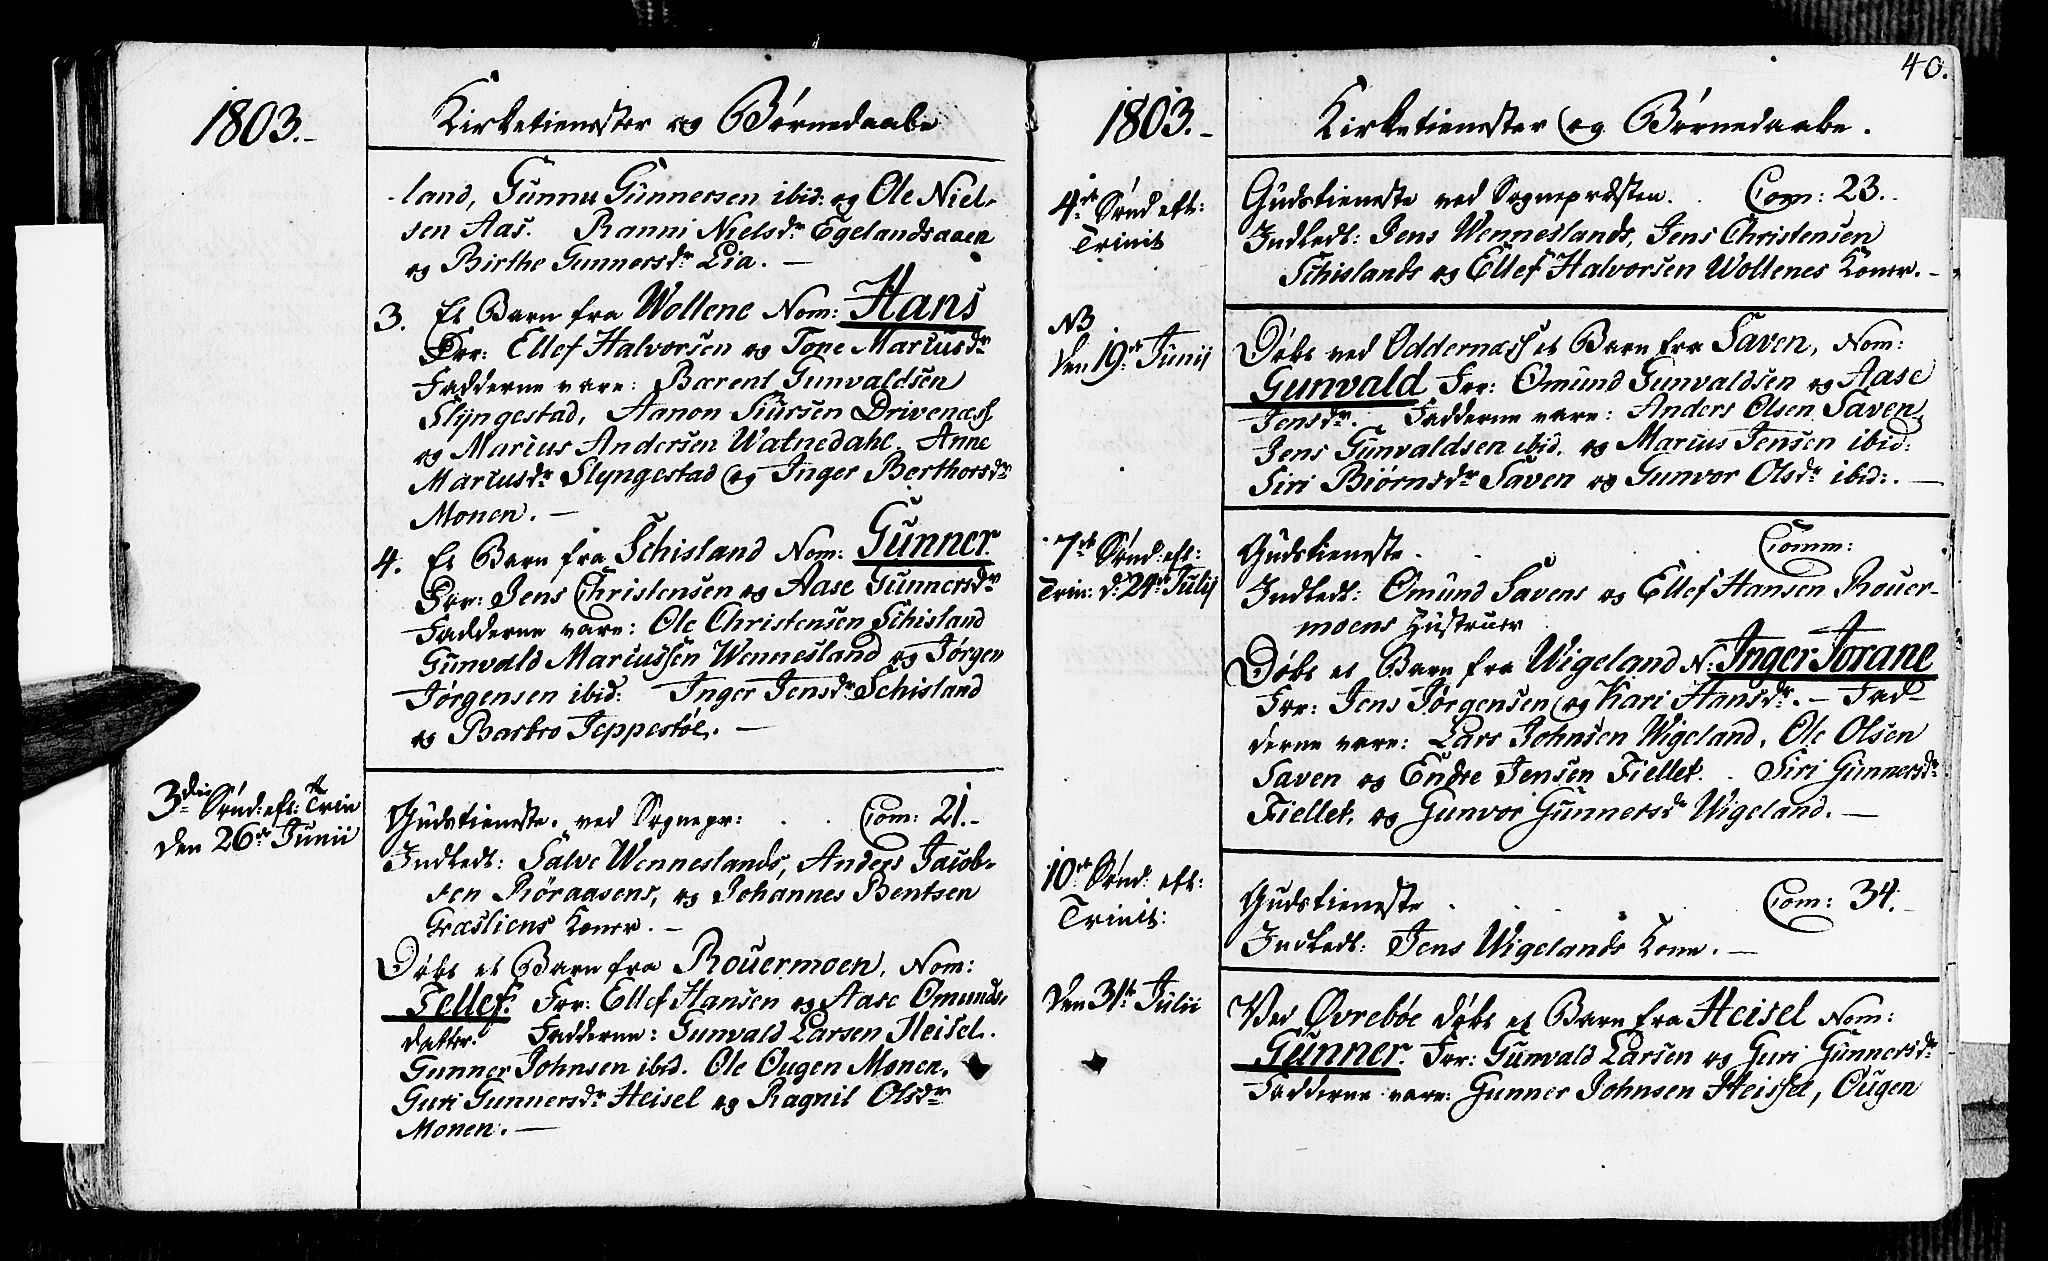 1803.-
Kirketienester og Børnedaabe
-land, Gunnu Gunnersen ibid: og Ole Niel-
sen Aas. Ranni Nielsdr Egelandsaaen
og Birthe Gunnersdr Lia. —
3. Et Barn fra Wollene Nom: Hans
For: Ellef Halvorsen og Tone Mariusdr
Fadderne vare: Bærent Gunvaldsen
Slyngestad, Aanon Siursen Drivenæss
og Marius Andersen Watnedahl. Anne
Mariusdr Slyngestad og Inger Berthorsdr
Monen. —
4. Et Barn fra Schisland Nom: Gunner.
For: Jens Christensen og Aase Gunnersdr
Fadderne vare: Ole Christensen Schisland
Gunvald Mariussen Wennesland og Jørgen
Jørgensen ibid: Inger Jensdr Schisland
og Barbro Jeppestøl. —
3die Sønd: eft: Trin
den 26de Junii
Gudstieneste. ved Sognepr: . . Com: 21.-
Indledt: Salve Wenneslands, Anders Jacob-
sen Röraasens, og Johannes Bentsen
Græsliens Koner. —
Døbt et Barn fra Rouermoen, Nom:
Tellef. For: Ellef Hansen og Aase Omunds-
datter. Fadderne: Gunvald Larsen Heisel.
Gunner Johnsen ibid. Ole Ougen Monen.
Guri Gunnersdr Heisel og Ragnil Olsdr
Monen. —
40.
1803.-
Kirketienester og Børnedaabe.
4de Sønd eft:
Trinit
Gudstieneste ved Sognepræsten. . Com: 23.
Indledt: Jens Wenneslands, Jens Christensen
Schislands og Ellef Halvorsen Wollenes Koner. -
NB
den 19de Junii
Døbt ved Oddernæss et Barn fra Saven, Nom:
Gunvald For: Omund Gunvaldsen og Aase
Jensdr. Fadderne vare: Anders Olsen Saven,
Jens Gunvaldsen ibid. og Marius Jensen ibid:
Siri Biørnsdr Saven og Gunvor Olsdr ibid:. —
7de Sønd: eft:
Trin: d: 24de Julij
Gudstieneste. . . Comm:
Indledt: Omund Savens og Ellef Hansen Rouer-
moens Hustruer
Døbt et Barn fra Wigeland N: Inger Torane
For: Jens Jørgensen og Kari Hansdr. — Fad-
derne vare: Lars Johnsen Wigeland, Ole Olsen
Saven og Endre Jensen Fiellet. Siri Gunnersdr
Fiellet, og Gunvor Gunnersdr Wigeland. —
10de Sønd: eft:
Trinit:
Gudstieneste . . . . Com: 34.-
Indledt: Jens Wigelands Kone. —
den 31te Julii
Ved Øvrebøe døbt et Barn fra Heisel Nom:
Gunner. For: Gunvald Larsen og Guri Gunnersdr
Fadderne vare: Gunner Johnsen Heissel, Ougen